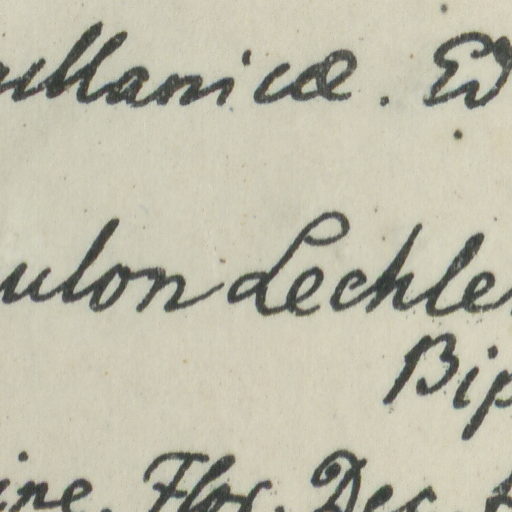 ullanicæ. Ed
ulon Lechle
Bip
ine. Flor. Dec.